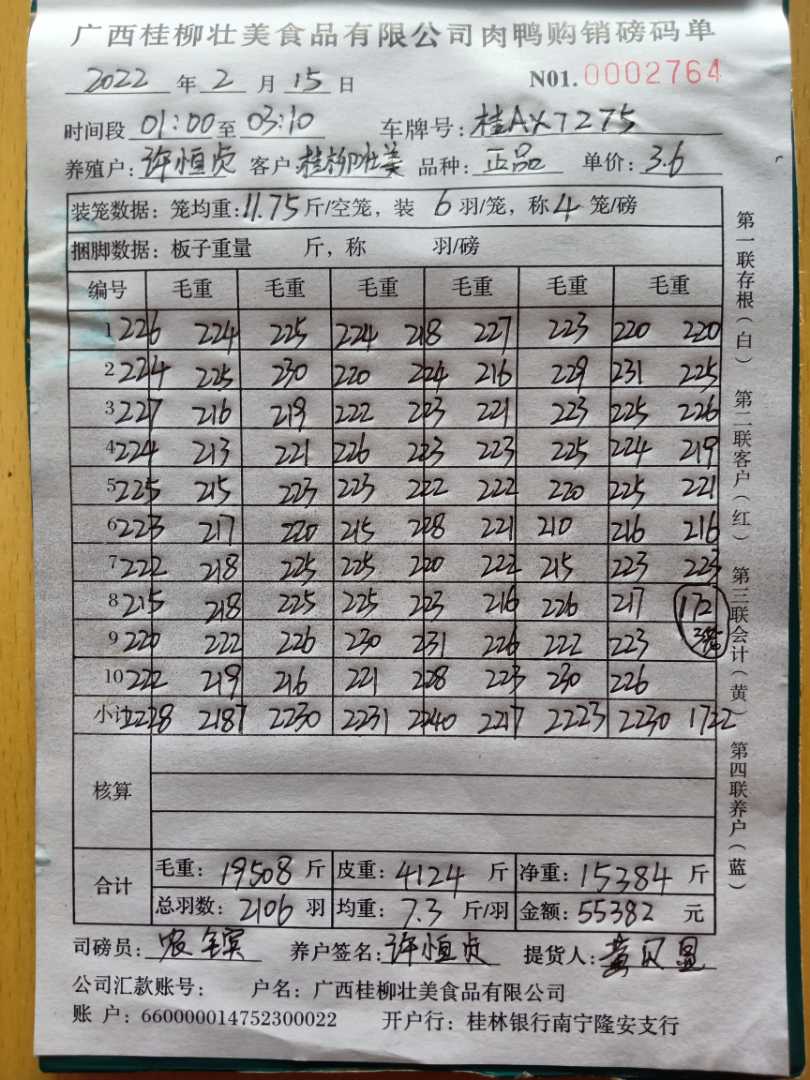 广西桂柳壮美食品有限公司肉鸭购销磅码单
2022 年 2 月 15 日 N01. 0002764
时间段 01:00 至 03:10 车牌号: 桂AX7275
养殖户: 许恒贞 客户: 桂柳壮美 品种: 正品 单价: 3.6
装笼数据: 笼均重: 11.75 斤/空笼, 装 6 羽/笼, 称 4 笼/磅
捆脚数据: 板子重量 斤, 称 羽/磅
编号 毛重 毛重 毛重 毛重 毛重 毛重
1 226 224 225 224 218 227 223 220 220
2 224 225 230 220 224 216 229 231 225
3 227 216 219 222 223 221 223 225 226
4 224 213 221 226 223 223 225 224 219
5 225 215 223 223 222 222 220 225 221
6 223 217 220 215 228 221 210 216 216
7 222 218 225 225 220 222 215 223 223
8 215 218 225 225 223 216 226 217 172
9 220 222 226 230 231 226 222 223 3笼
10 222 219 216 221 228 223 230 226
小计 2228 2187 2230 2231 2240 2217 2223 2230 1722
核算
合计
毛重: 19508 斤 皮重: 4124 斤 净重: 15384 斤
总羽数: 2106 羽 均重: 7.3 斤/羽 金额: 55382 元
司磅员: 养户签名: 许恒贞 提货人:
公司汇款账号: 户名: 广西桂柳壮美食品有限公司
账 户: 660000014752300022 开户行: 桂林银行南宁隆安支行
第一联存根(白) 第二联客户(红) 第三联会计(黄) 第四联养户(蓝)